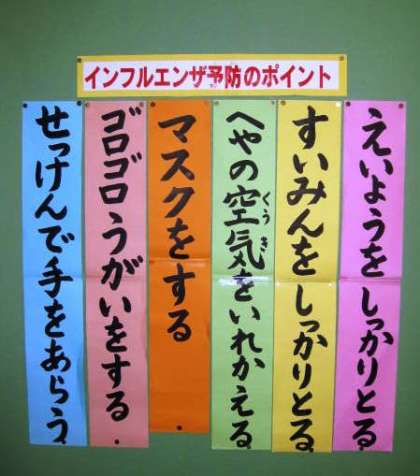 インフルエンザ予防のポイント
えいようをしっかりとる
すいみんをしっかりとる
へやの空気をいれかえる
くうき
マスクをする
ゴロゴロうがいをする
せっけんで手をあらう